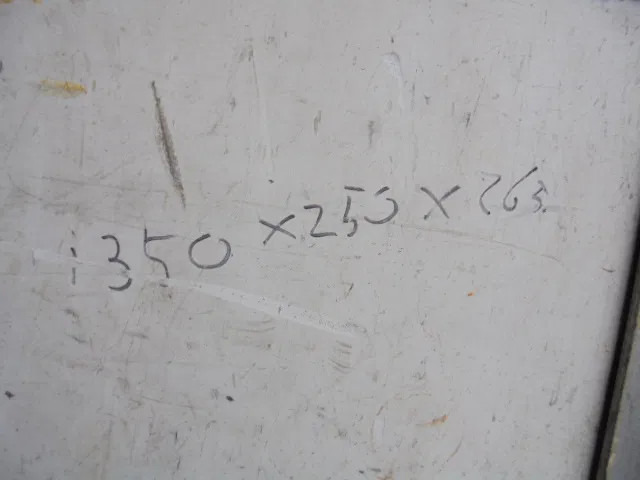 1350 x 250 x 265